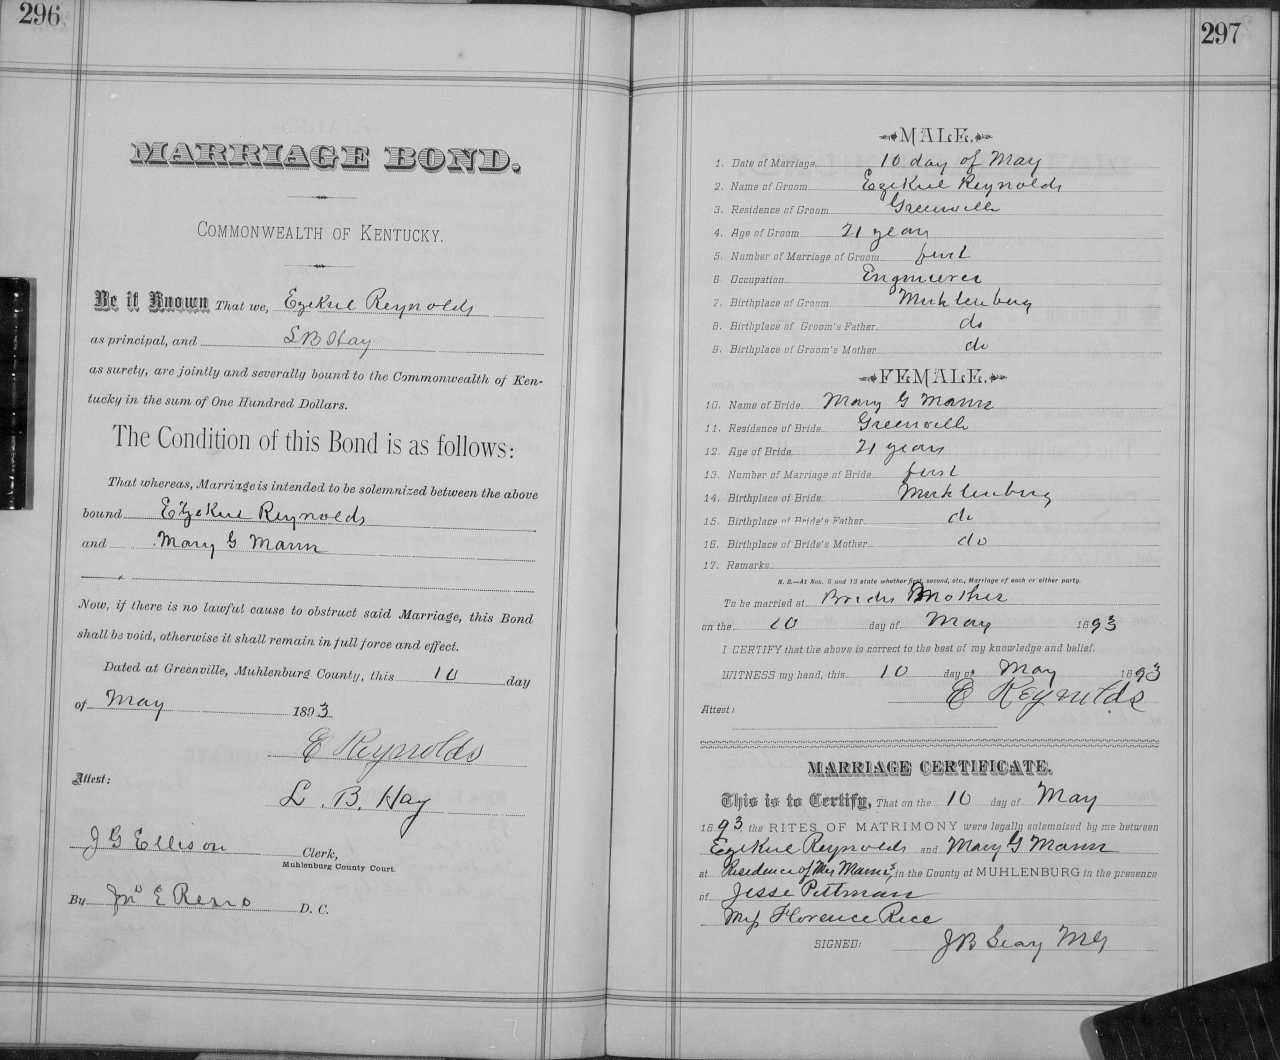 296
MARRIAGE BOND.
COMMONWEALTH OF KENTUCKY.
Be it Known That we, Ezekiel Reynolds
as principal, and L B Hay
as surety, are jointly and severally bound to the Commonwealth of Ken-
tucky in the sum of One Hundred Dollars.
The Condition of this Bond is as follows:
That whereas, Marriage is intended to be solemnized between the above
bound Ezekiel Reynolds
and Mary G Mann
Now, if there is no lawful cause to obstruct said Marriage, this Bond
shall be void, otherwise it shall remain in full force and effect.
Dated at Greenville, Muhlenburg County, this 10 day
of May 1893
E Reynolds
Attest:
L. B. Hay
J G Ellison Clerk,
Muhlenburg County Court.
By Jno E Reno D. C.
297
MALE.
1. Date of Marriage 10 day of May
2. Name of Groom Ezekiel Reynolds
3. Residence of Groom Greenville
4. Age of Groom 21 years
5. Number of Marriage of Groom first
6. Occupation Engineer
7. Birthplace of Groom Muhlenburg
8. Birthplace of Groom's Father do
9. Birthplace of Groom's Mother do
FEMALE.
10. Name of Bride Mary G Mann
11. Residence of Bride Greenville
12. Age of Bride 21 years
13. Number of Marriage of Bride first
14. Birthplace of Bride Muhlenburg
15. Birthplace of Bride's Father do
16. Birthplace of Bride's Mother do
17. Remarks
N. B.—At Nos. 5 and 13 state whether first, second, etc., Marriage of each or either party.
To be married at Brides Mother
on the 10 day of May 1893
I CERTIFY that the above is correct to the best of my knowledge and belief.
WITNESS my hand, this 10 day of May 1893
E Reynolds
Attest:
MARRIAGE CERTIFICATE.
This is to Certify, That on the 10 day of May
1893 the RITES OF MATRIMONY were legally solemnized by me between
Ezekiel Reynolds and Mary G Mann
at Residence of Mrs Mann's in the County of MUHLENBURG in the presence
of Jesse Pittman
Miss Florence Rice
SIGNED: J B Seay MG